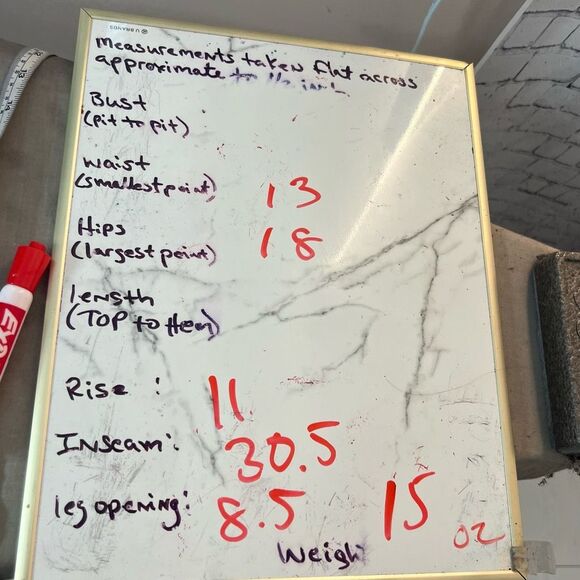 U BRANDS
Measurements taken flat across
approximate
Bust
(pit to pit)
waist
(smallest point) 13
Hips
(largest point) 18
length
(TOP to Hem)
Rise : 11
Inseam: 30.5
leg opening: 8.5 15 oz
Weigh
EXPO